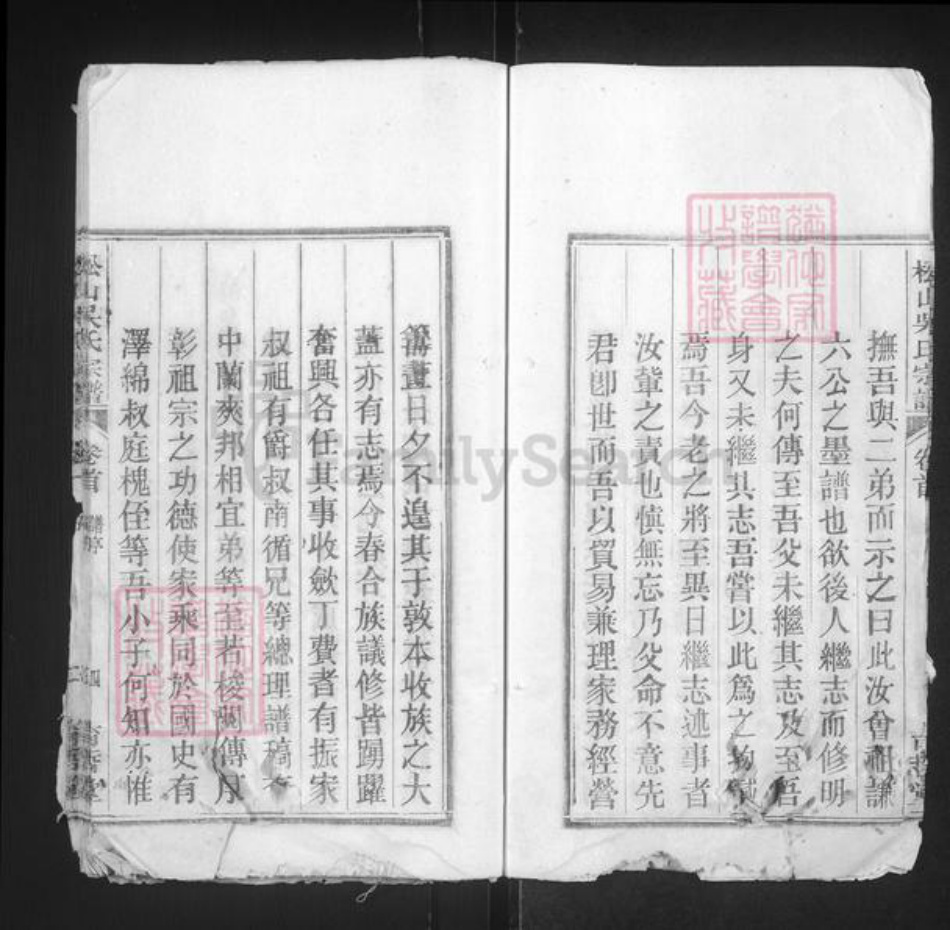 撫吾與二弟而示之曰此汝曾祖謙
六公之墨譜也欲後人繼志而修明
之夫何傳至吾父未繼其志及至吾
身又未繼其志吾嘗以此為之抱憾
焉吾今老之將至異日繼志述事者
汝輩之責也慎無忘乃父命不意先
君卽世而吾以貿易兼理家務經營
籌畫日夕不遑其于敦本收族之大
蓋亦有志焉今春合族議修皆踴躍
奮興各任其事收斂丁費者有振家
叔祖有爵叔南循兄等總理譜稿
中蘭爽邦相宜弟等至若梭閱傳
彰祖宗之功德使家乘同於國史有
澤綿叔庭槐侄等吾小子何知亦惟
松山吳氏宗譜 卷首
松山吳氏宗譜 卷首 譜序 四
FamilySearch